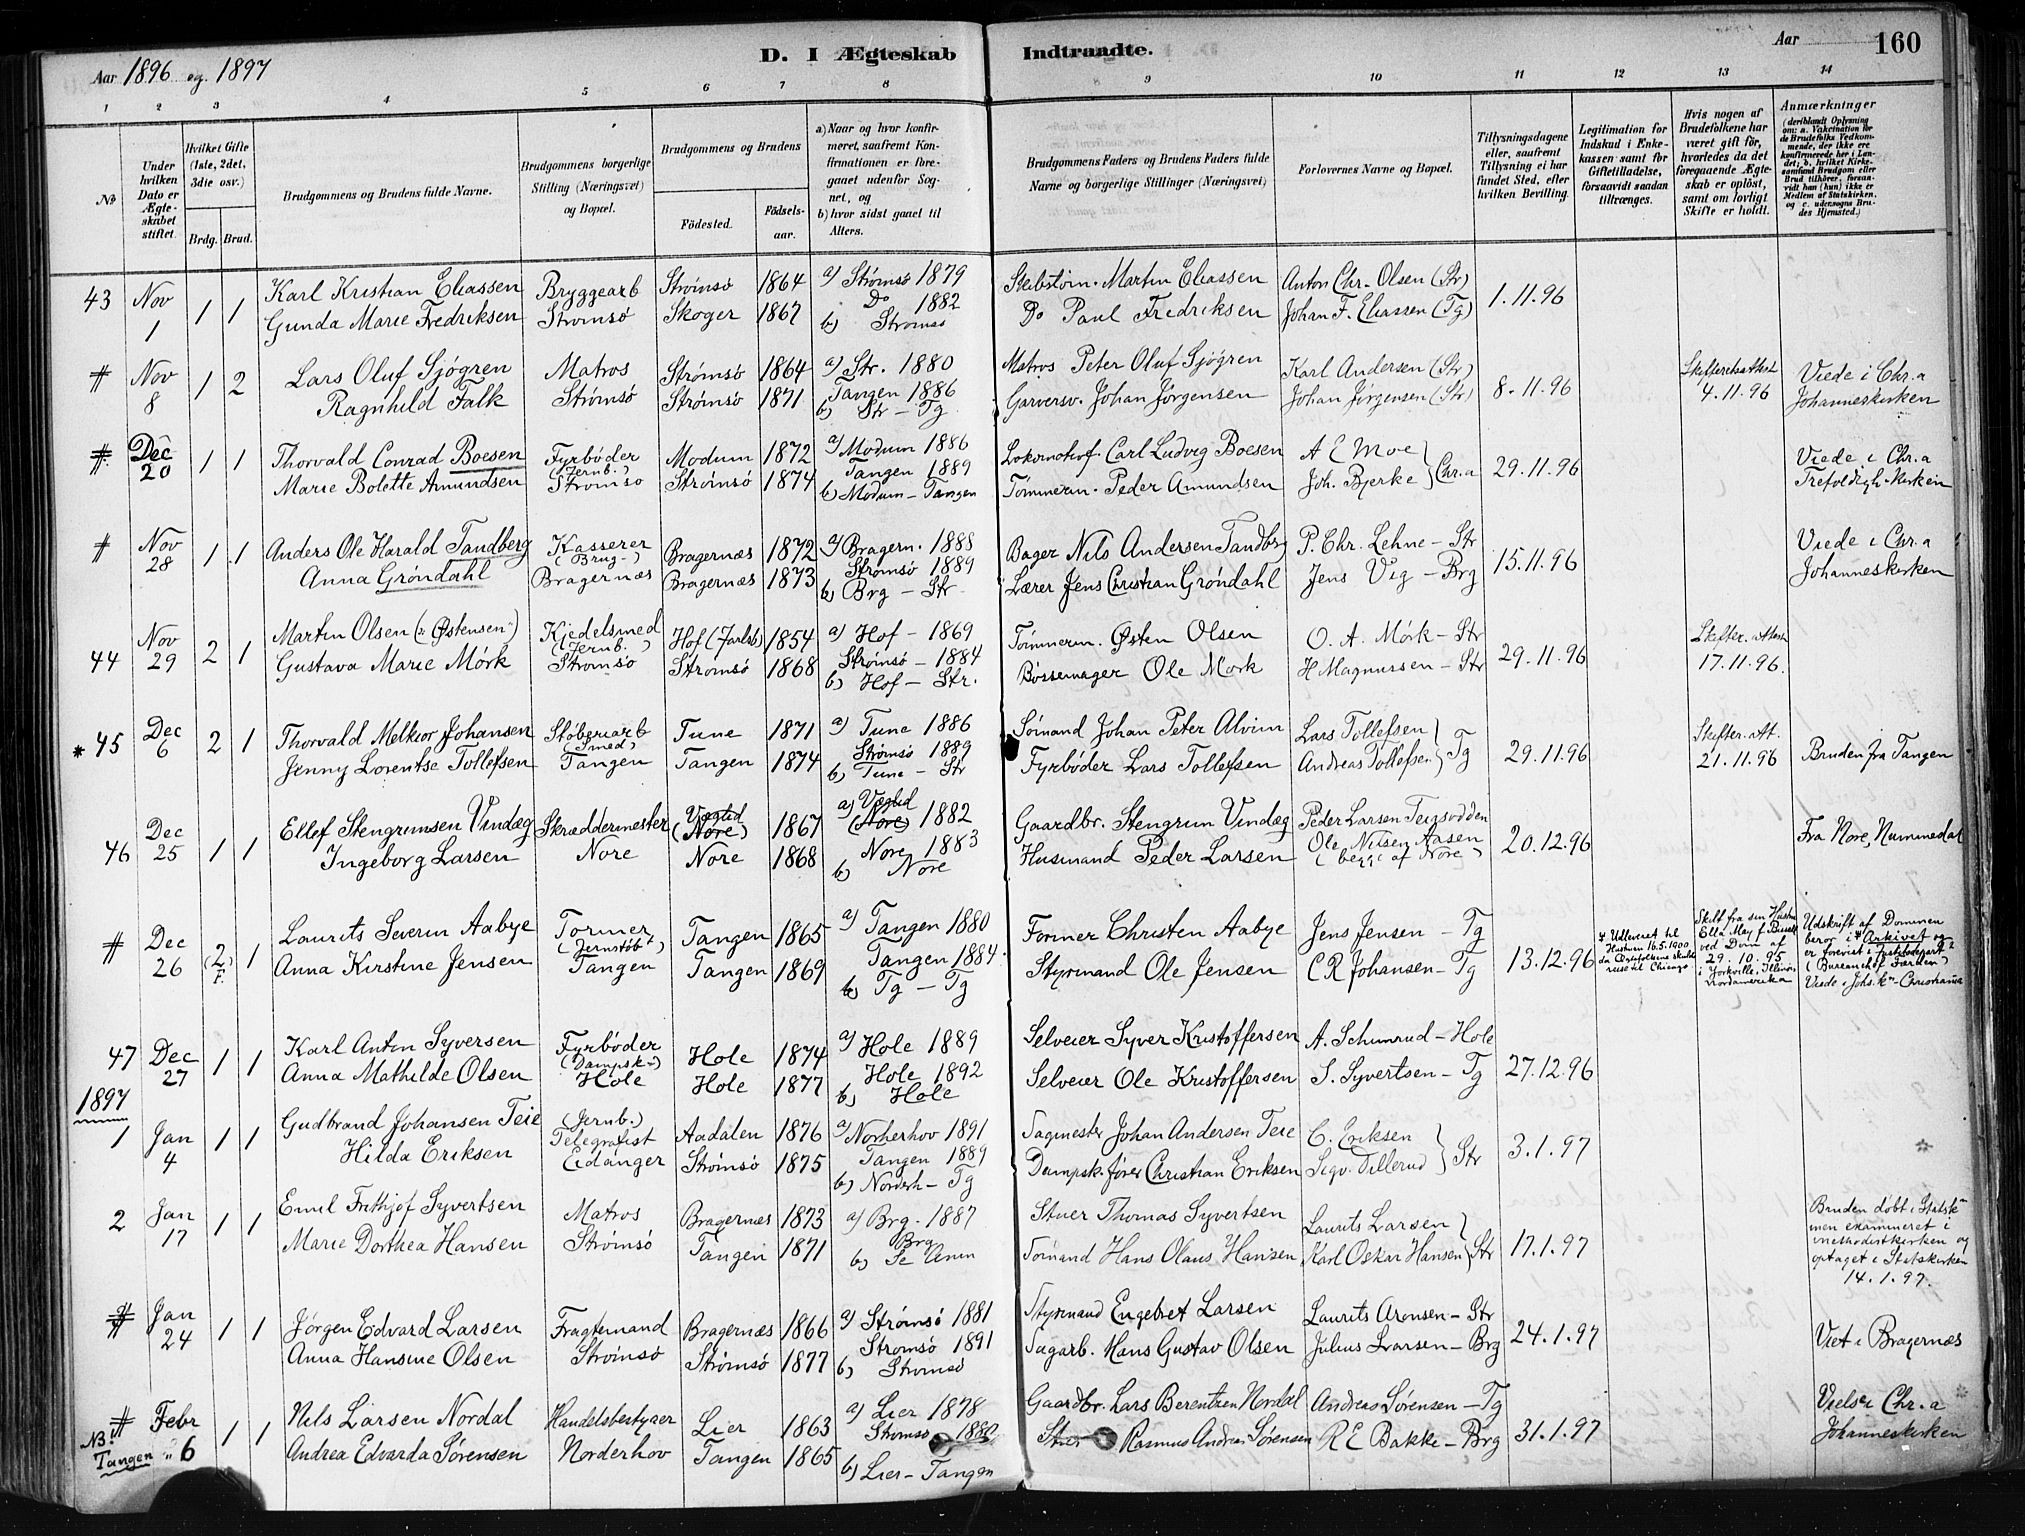 Aar 1896 og 1897
D. I Ægteskab Indtraadte.
Aar
160
1 2 3 4 5 6 7 8 9 10 11 12 13 14
No
Under hvilken Dato er Ægteskabet stiftet.
Hvilket Gifte (1ste, 2det, 3die osv.)
Brdg. Brud.
Brudgommens og Brudens fulde Navne.
Brudgommens borgerlige Stilling (Næringsvei) og Bopæl.
Brudgommens og Brudens
Fødested.
Fødsels-aar.
a) Naar og hvor konfirmeret, saafremt Konfirmationen er foregaaet udenfor Sognet, og
b) hvor sidst gaaet til Alters.
Brudgommens Faders og Brudens Faders fulde Navne og borgerlige Stillinger (Næringsvei)
Forlovernes Navne og Bopæl.
Tillysningsdagene eller, saafremt Tillysning ei har fundet Sted, efter hvilken Bevilling.
Legitimation for Indskud i Enkekassen samt for Giftetilladelse, forsaavidt saadan tiltrænges.
Hvis nogen af Brudefolkene har været gift før, hvorledes da det foregaaende Ægteskab er opløst, samt om lovligt Skifte er holdt.
Anmærkninger
43 Nov 1 1 1 Karl Kristian Eliassen Bryggearb Strømsø 1864 a) Strømsø 1879 Martin Eliassen Anton Chr. Olsen (Str) 1.11.96
Gunda Marie Fredriksen Strømsø Skoger 1867 Do 1882 b) Strømsø Do Paul Fredriksen Johan F. Eliassen (Tg)
# Nov 8 1 2 Lars Oluf Sjögren Matros Strømsø 1864 a) Str. 1880 Matros Peter Oluf Sjögren Karl Andersen (Str) 8.11.96 4.11.96 Viede i Chr.a
Ragnhild Falk Strømsø Strømsø 1871 Tangen 1886 b) Str - Tg Garversv. Johan Jørgensen Johan Jørgensen (Str) Johanneskirken
# Dec 20 1 1 Thorvald Conrad Boesen Fyrbøder (Jernb.) Modum 1872 a) Modum 1886 Carl Ludvig Boesen A E Moe 29.11.96 Viede i Chr.a
Marie Bolette Amundsen Strømsø Strømsø 1874 Tangen 1889 b) Modum - Tangen Tømmerm. Peder Amundsen Joh. Bjerke } Chr.a Trefoldigh.kirken
# Nov 28 1 1 Anders Ole Harald Tandberg Kasserer (Brug.) Bragernæs 1872 a) Bragern. 1888 Bager Nils Andersen Tandbrg P. Chr. Lehne - Str 15.11.96 Viede i Chr.a
Anna Grøndahl Bragernæs Bragernæs 1873 Strømsø 1889 b) Brg - Str Lærer Jens Christian Grøndahl Jens Vig - Brg Johanneskirken
44 Nov 29 2 1 Martin Olsen ("Østensen") Kjedelsmed (Jernb.) Hof (Jarlsb) 1854 a) Hof - 1869 Tømmerm. Østen Olsen O. A. Mörk - Str 29.11.96 Skifter.Attest
Gustava Marie Mörk Strømsø Strømsø 1868 Strømsø - 1884 b) Hof - Str. Bössemager Ole Mørk H Magnussen - Str 17.11.96.
* 45 Dec 6 2 1 Thorvald Melkior Johansen Støberiarb (Smed) Tune 1871 a) Tune 1886 Sømand Johan Peter Alvim Lars Tollefsen 29.11.96 Skifter.Att.
Jenny Lorentse Tollefsen Tangen Tangen 1874 Strømsø 1889 b) Tune - Str Fyrbøder Lars Tollefsen Andreas Tollefsen } Tg 21.11.96 Bruden fra Tangen
46 Dec 25 1 1 Ellef Stengrimsen Vindæg Skræddermester Vægted (Nore) 1867 a) Vægted (Nore) 1882 Gaardbr. Stengrim Vindæg Peder Larsen Teigsodden 20.12.96 Fra Nore, Nummedal
Ingeborg Larsen Nore Nore 1868 Nore 1883 b) Nore Husmand Peder Larsen Ole Nilsen Aasen (begge af Nore)
# Dec 26 (2) F. 1 Laurits Severin Aabye Former (Jernstøb) Tangen 1865 a) Tangen 1880 Former Christen Aabye Jens Jensen - Tg 13.12.96
Anna Kirstine Jensen Tangen Tangen 1869 Tangen 1884. b) Tg - Tg Styrmand Ole Jensen C R Johansen - Tg
Udleveret til Hustru 16.5.1900 da Ægtefolkene skulde reise til Chicago.
Skilt fra sin Hustru Ella May f. ved Dom af 29.10.95 i Yorkville, Illinois Nordamerika
Udskrift af Dommen beror i Arkivet og er forevist i Justitsdepart. Viede i Johs.k - Christiania
47 Dec 27 1 1 Karl Anton Syversen Fyrbøder (Dampsk.) Hole 1874 a) Hole 1889 Selveier Syver Kristoffersen A. Schinrud - Hole 27.12.96
Anna Mathilde Olsen Hole Hole 1877 Hole 1892 b) Hole Selveier Ole Kristoffersen S. Syvertsen - Tg
1897
1 Jan 4 1 1 Gudbrand Johansen Teie (Jernb.) Telegrafist Aadalen 1876 a) Norderhov 1891 Sagmester Johan Andersen Teie C. Eriksen 3.1.97
Hilda Eriksen Eidanger Strømsø 1875 Tangen 1889 b) Norderh - Tg Dampsk.fører Christian Eriksen Sigv. Tillerud } Str
2 Jan 17 1 1 Emil Frithjof Syvertsen Matros Bragernæs 1873 a) Brg. 1887 Stuer Thomas Syvertsen Laurits Larsen 17.1.97
Marie Dorthea Hansen Strømsø Tangen 1871 Brg b) Se Anm Sømand Hans Olaus Hansen Karl Oskar Hansen } Str
Bruden døbt i Statsk men examineret i methodistkirken og optaget i Statskirken 14.1.97.
# Jan 24 1 1 Jørgen Edvard Larsen Fragtemand Bragernæs 1866 a) Strømsø 1881 Styrmand Engebret Larsen Laurits Aronsen - Str 24.1.97
Anna Hansine Olsen Strømsø Strømsø 1877 Strømsø 1891 b) Strømsø Sagarb. Hans Gustav Olsen Julius Larsen - Brg Viet i Bragernæs
# Febr 6 1 1 Nils Larsen Nordal Handelsbestyrer Lier 1863 a) Lier 1878 Gaardbr. Lars Berentzen Nordal Andreas Sørensen - Tg 31.1.97 Vielse i Chr.a
NB! Tangen Andrea Edvarda Sørensen Norderhov Tangen 1865 Strømsø 1880 b) Lier - Tangen Stuer Rasmus Andreas Sørensen R E Bakke - Brg Johanneskirken